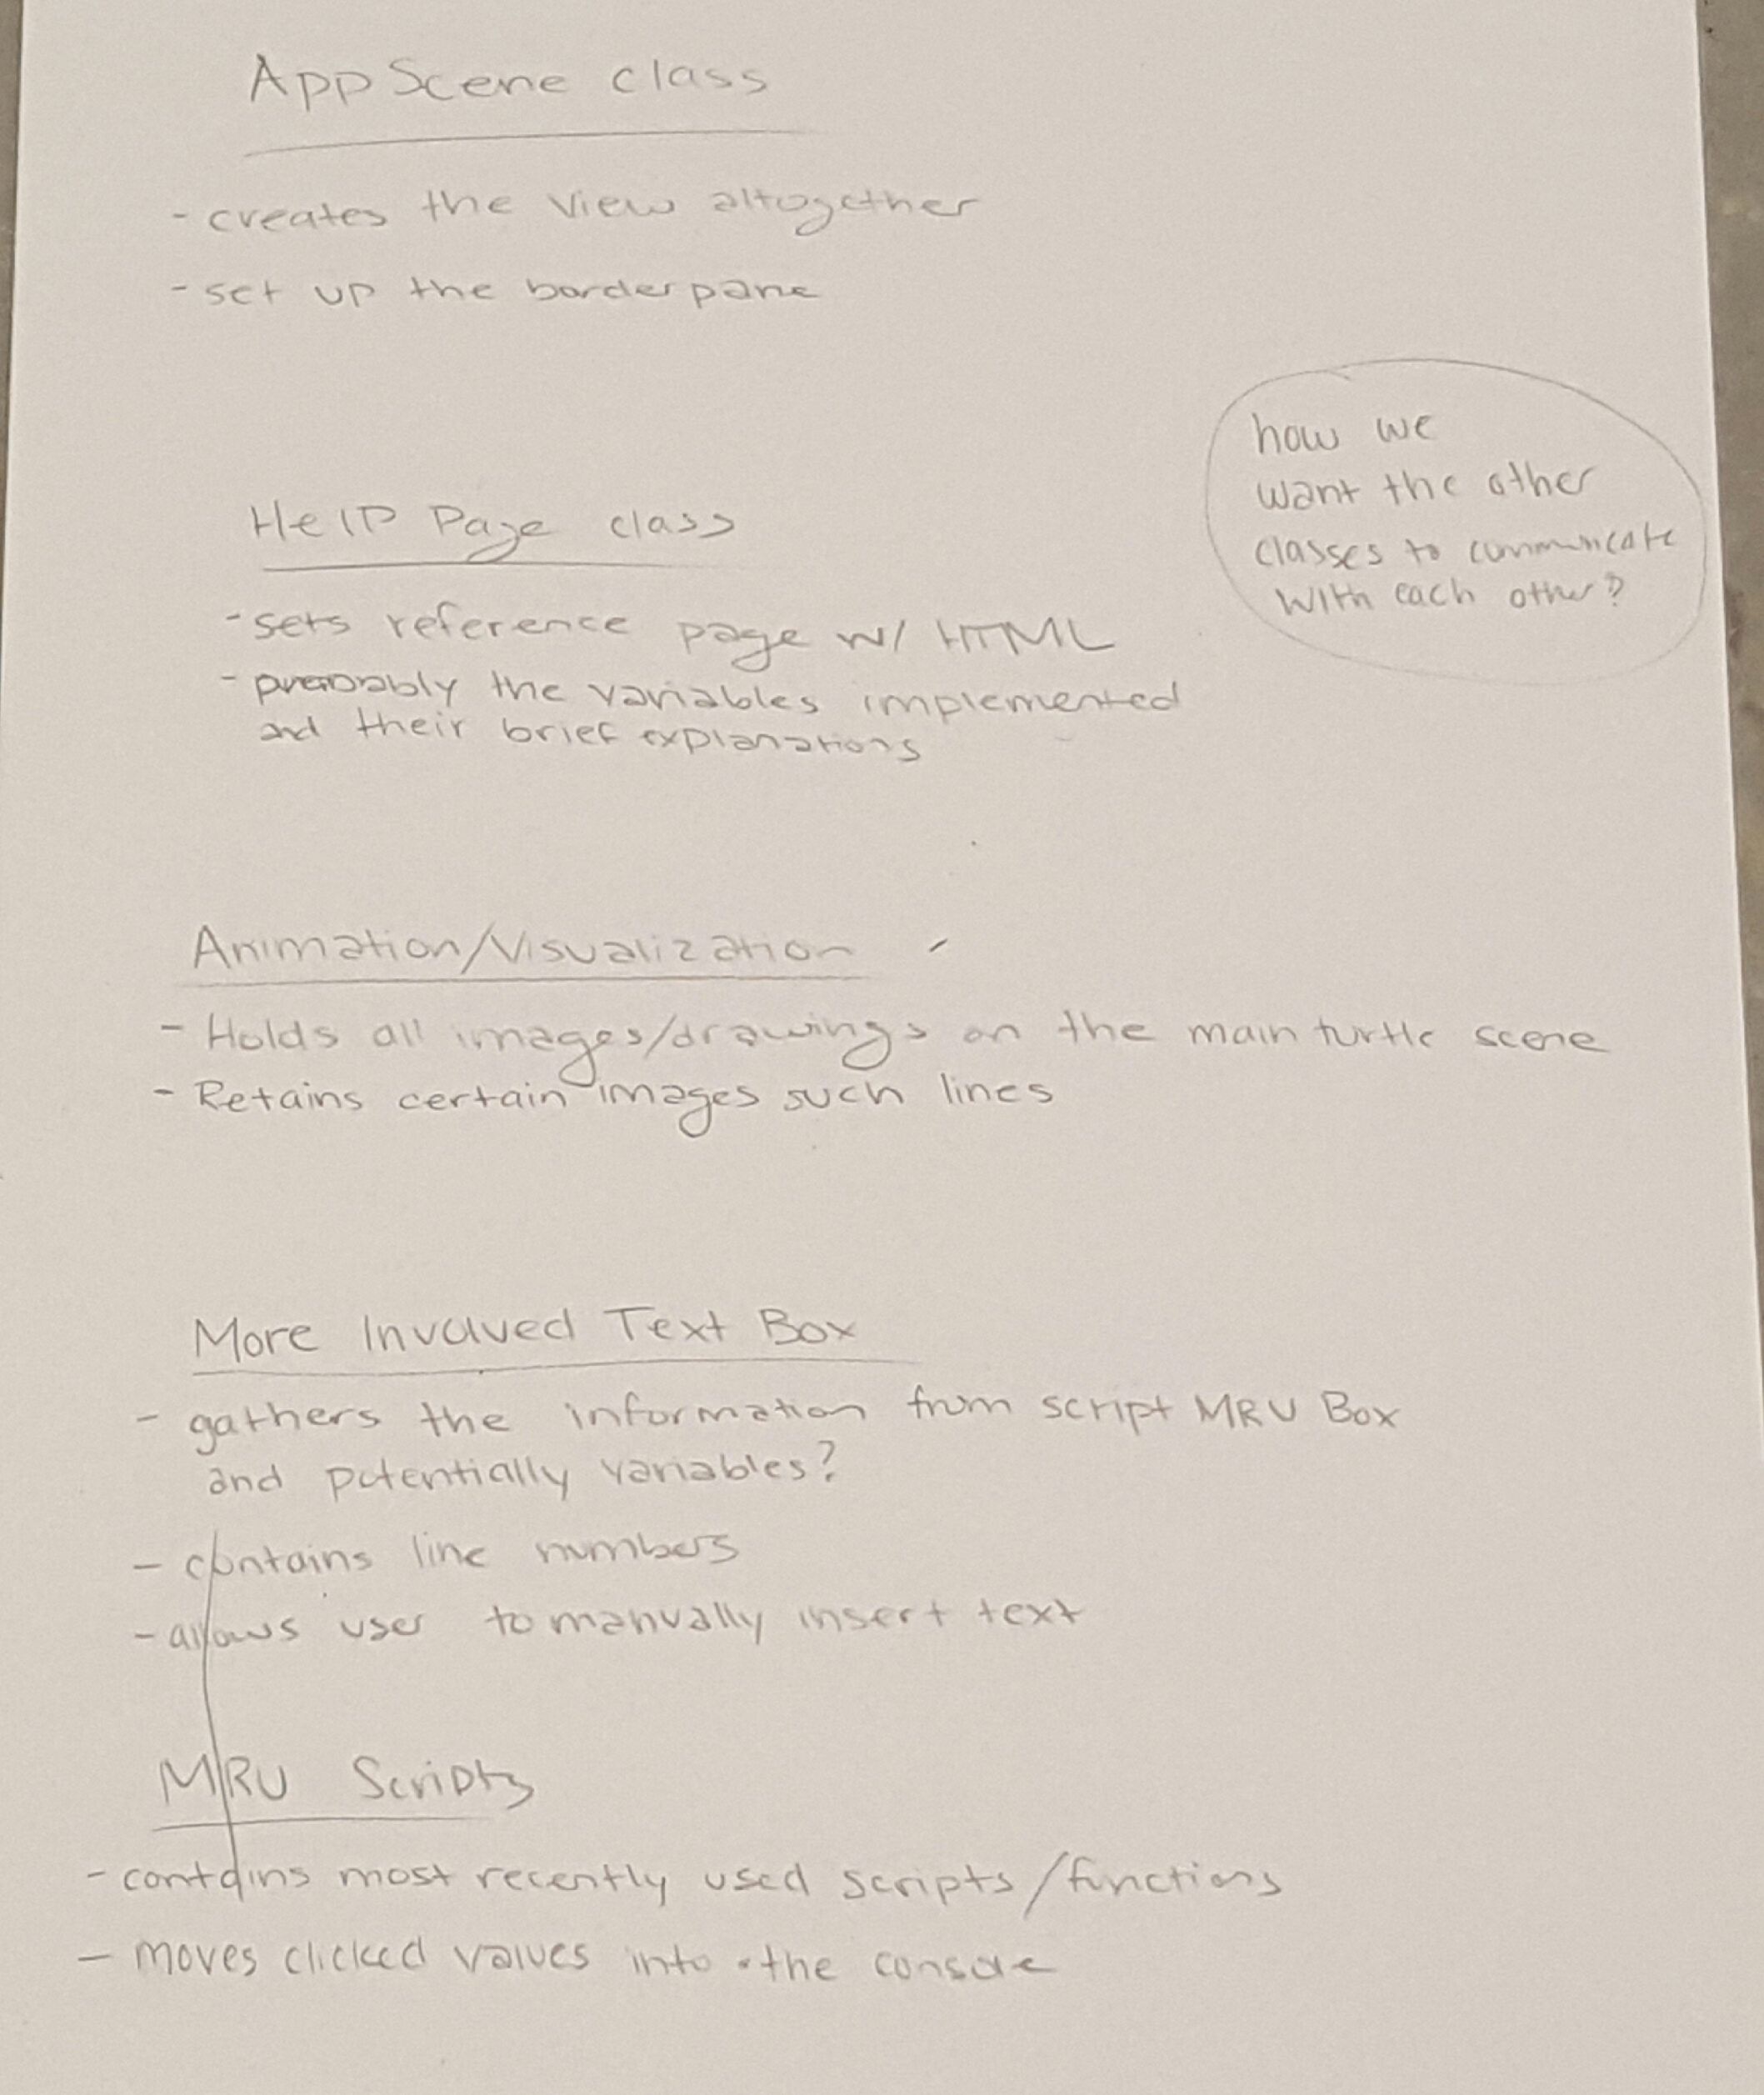 AppScene class
- creates the view altogether
- set up the borderpane
how we
want the other
classes to communicate
with each other?
Help Page class
- sets reference page w/ HTML
- probably the variables implemented
and their brief explanations
Animation/Visualization
- Holds all images/drawings on the main turtle scene
- Retains certain images such lines
More Involved Text Box
- gathers the information from script MRU Box
and potentially variables?
- contains line numbers
- allows user to manually insert text
MRU Scripts
- contains most recently used scripts/functions
- moves clicked values into the console